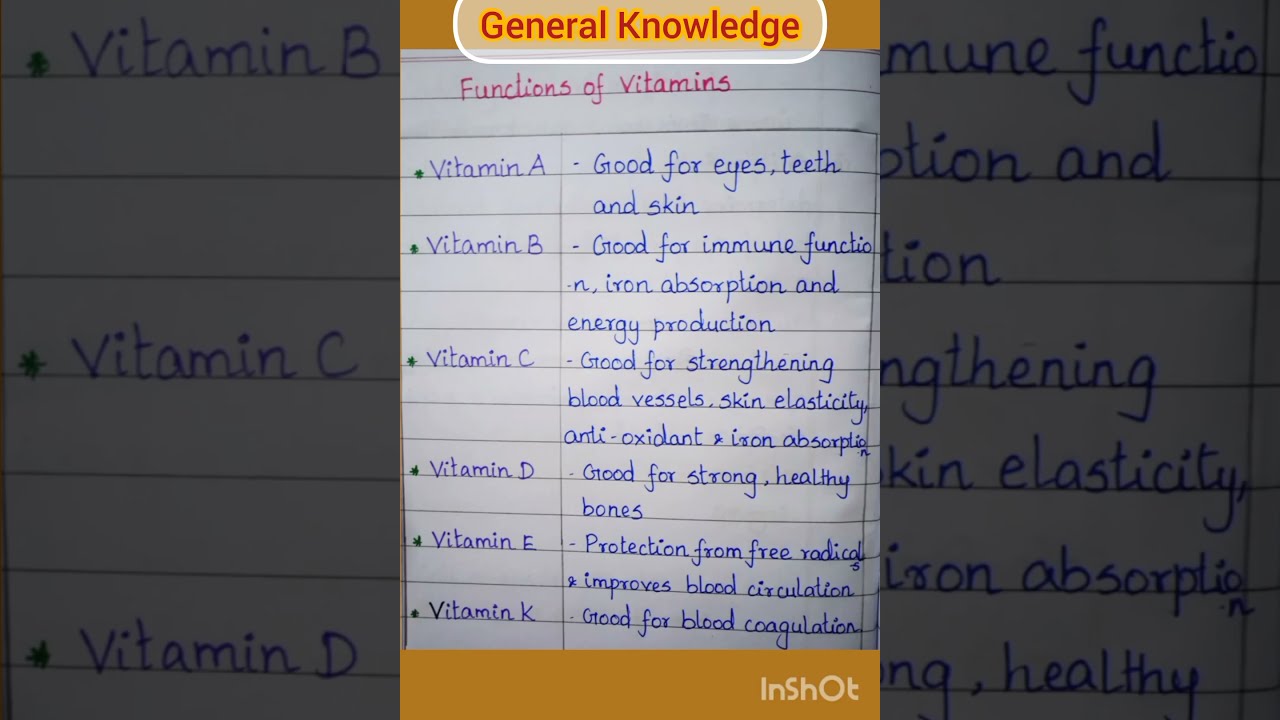 General Knowledge
Functions of Vitamins
* Vitamin A - Good for eyes, teeth
and skin
* Vitamin B - Good for immune functio
-n, iron absorption and
energy production
* Vitamin C - Good for strengthening
blood vessels, skin elasticity,
anti-oxidant & iron absorption
* Vitamin D - Good for strong, healthy
bones
* Vitamin E - Protection from free radicals
& improves blood circulation
* Vitamin K - Good for blood coagulation
InShOt
* Vitamin B
* Vitamin C
* Vitamin D
mune functio
ption and
tion
ngthening
kin elasticity,
iron absorption
ng, healthy